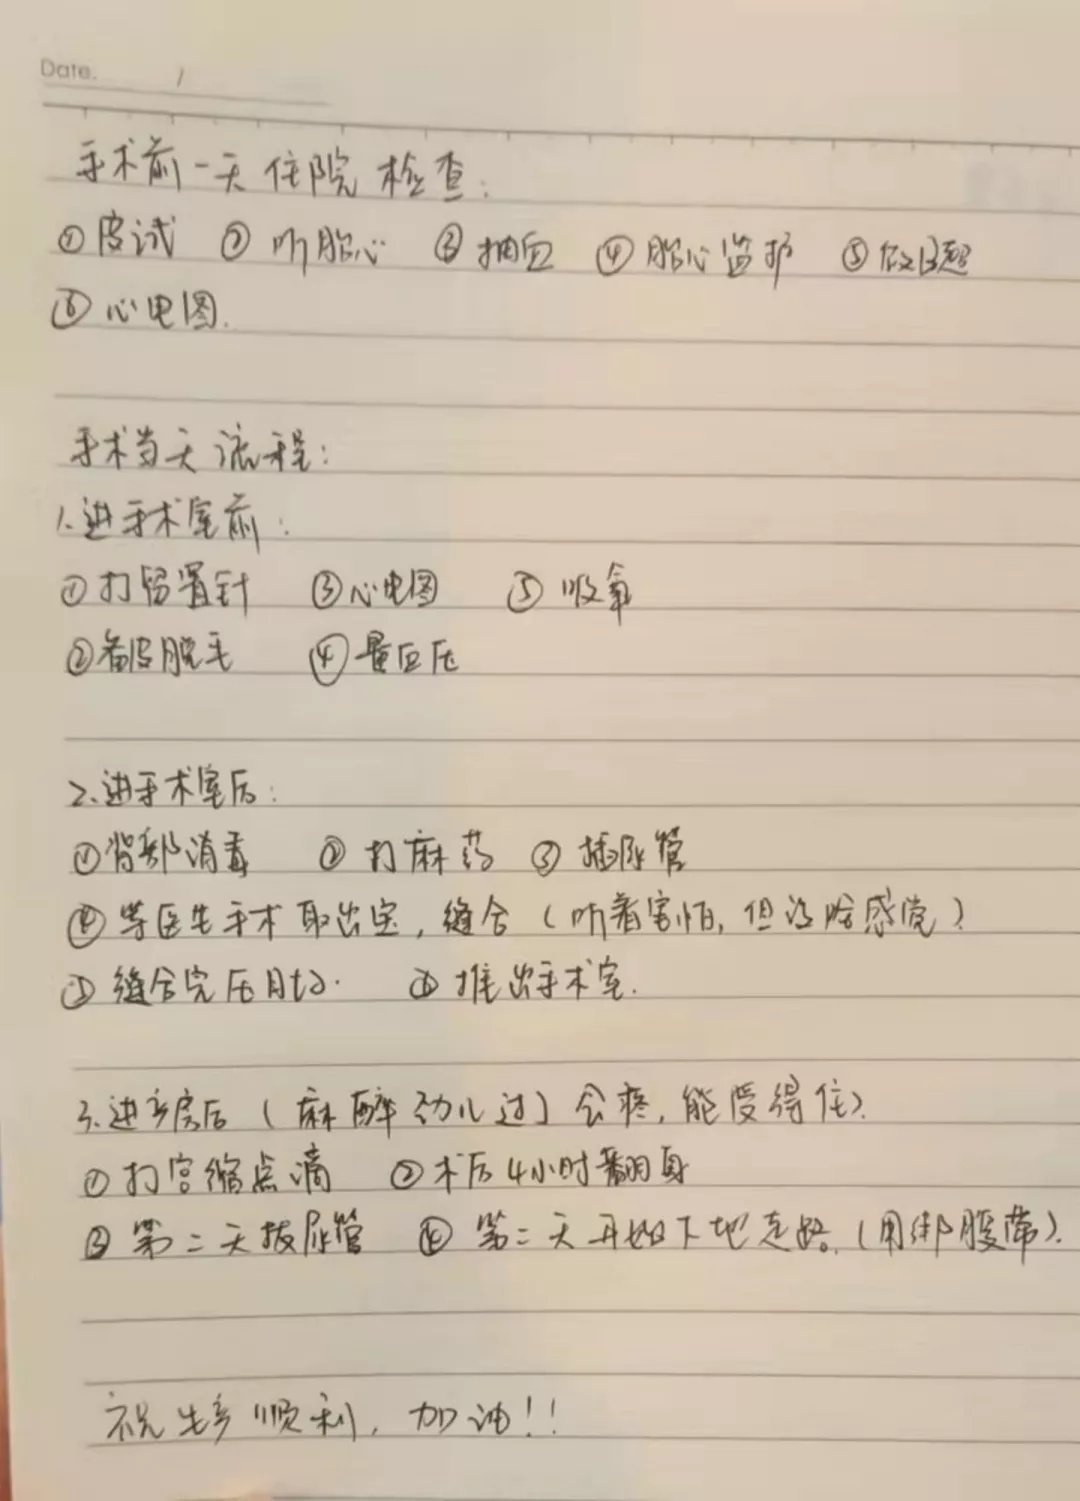 Date.    /
手术前一天住院检查:
①皮试 ②听胎心 ③抽血 ④胎心监护 ⑤做B超
⑥心电图.
手术当天流程:
1.进手术室前:
①打留置针 ③心电图 ⑤吸氧
②备皮脱毛 ④量血压
2.进手术室后:
①背部消毒 ②打麻药 ③插尿管
④等医生手术取出宝,缝合(听着害怕,但没啥感觉)
⑤缝合完压肚子. ⑥推出手术室.
3.进产房后(麻醉劲儿过)会疼,能受得住).
①打宫缩点滴 ②术后4小时翻身
③第二天拔尿管 ④第二天开始下地走路.(用绑腹带).
祝生产顺利,加油!!